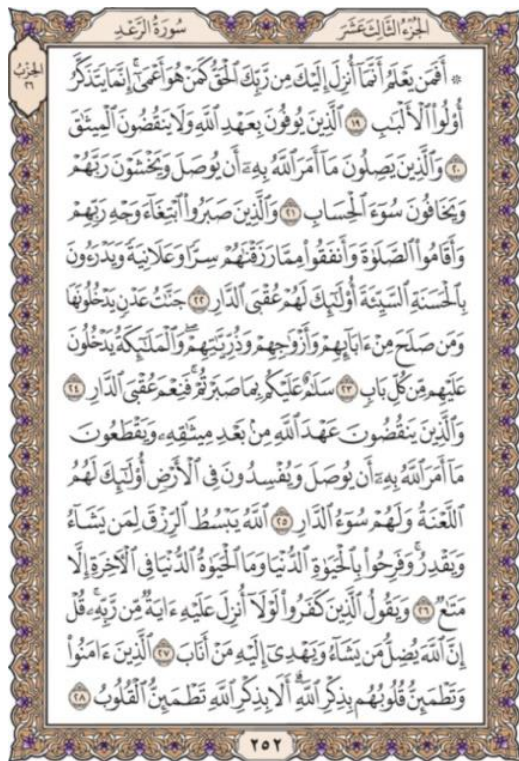 الجزء الثالث عشر
سورة الرعد
الحزب
٢٦
۞ أَفَمَن يَعْلَمُ أَنَّمَآ أُنزِلَ إِلَيْكَ مِن رَّبِّكَ ٱلْحَقُّ كَمَنْ هُوَ أَعْمَىٰٓ ۚ إِنَّمَا يَتَذَكَّرُ
أُو۟لُوا۟ ٱلْأَلْبَٰبِ ١٩ ٱلَّذِينَ يُوفُونَ بِعَهْدِ ٱللَّهِ وَلَا يَنقُضُونَ ٱلْمِيثَٰقَ
٢٠ وَٱلَّذِينَ يَصِلُونَ مَآ أَمَرَ ٱللَّهُ بِهِۦٓ أَن يُوصَلَ وَيَخْشَوْنَ رَبَّهُمْ
وَيَخَافُونَ سُوٓءَ ٱلْحِسَابِ ٢١ وَٱلَّذِينَ صَبَرُوا۟ ٱبْتِغَآءَ وَجْهِ رَبِّهِمْ
وَأَقَامُوا۟ ٱلصَّلَوٰةَ وَأَنفَقُوا۟ مِمَّا رَزَقْنَٰهُمْ سِرًّا وَعَلَانِيَةً وَيَدْرَءُونَ
بِٱلْحَسَنَةِ ٱلسَّيِّئَةَ أُو۟لَٰٓئِكَ لَهُمْ عُقْبَى ٱلدَّارِ ٢٢ جَنَّٰتُ عَدْنٍ يَدْخُلُونَهَا
وَمَن صَلَحَ مِنْ ءَابَآئِهِمْ وَأَزْوَٰجِهِمْ وَذُرِّيَّٰتِهِمْ ۖ وَٱلْمَلَٰٓئِكَةُ يَدْخُلُونَ
عَلَيْهِم مِّن كُلِّ بَابٍ ٢٣ سَلَٰمٌ عَلَيْكُم بِمَا صَبَرْتُمْ ۚ فَنِعْمَ عُقْبَى ٱلدَّارِ ٢٤
وَٱلَّذِينَ يَنقُضُونَ عَهْدَ ٱللَّهِ مِنۢ بَعْدِ مِيثَٰقِهِۦ وَيَقْطَعُونَ
مَآ أَمَرَ ٱللَّهُ بِهِۦٓ أَن يُوصَلَ وَيُفْسِدُونَ فِى ٱلْأَرْضِ ۙ أُو۟لَٰٓئِكَ لَهُمُ
ٱللَّعْنَةُ وَلَهُمْ سُوٓءُ ٱلدَّارِ ٢٥ ٱللَّهُ يَبْسُطُ ٱلرِّزْقَ لِمَن يَشَآءُ
وَيَقْدِرُ ۚ وَفَرِحُوا۟ بِٱلْحَيَوٰةِ ٱلدُّنْيَا وَمَا ٱلْحَيَوٰةُ ٱلدُّنْيَا فِى ٱلْءَاخِرَةِ إِلَّا
مَتَٰعٌ ٢٦ وَيَقُولُ ٱلَّذِينَ كَفَرُوا۟ لَوْلَآ أُنزِلَ عَلَيْهِ ءَايَةٌ مِّن رَّبِّهِۦ ۗ قُلْ
إِنَّ ٱللَّهَ يُضِلُّ مَن يَشَآءُ وَيَهْدِىٓ إِلَيْهِ مَنْ أَنَابَ ٢٧ ٱلَّذِينَ ءَامَنُوا۟
وَتَطْمَئِنُّ قُلُوبُهُم بِذِكْرِ ٱللَّهِ ۗ أَلَا بِذِكْرِ ٱللَّهِ تَطْمَئِنُّ ٱلْقُلُوبُ ٢٨
٢٥٢